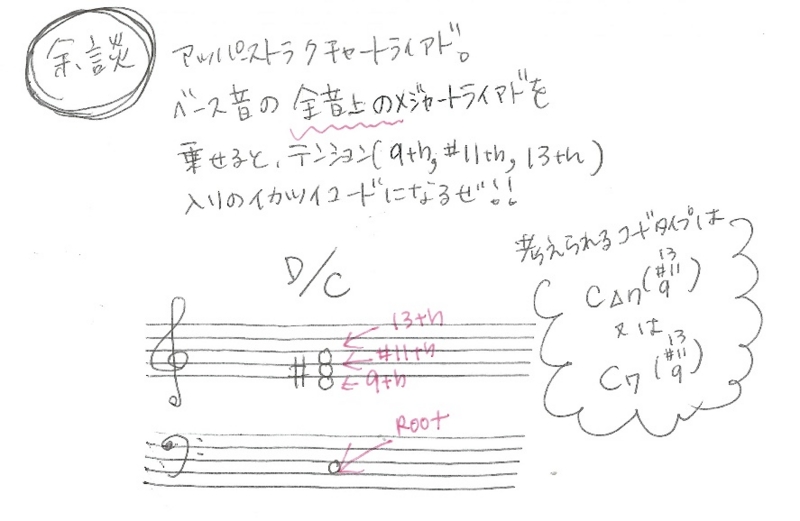 余談
アッパーストラクチャートライアド。
ベース音の全音上のメジャートライアドを
乗せると、テンション(9th, #11th, 13th)
入りのイカツイコードになるぜ!!
考えられるコードタイプは
C△7(13 #11 9)
又は
C7(13 #11 9)
D/C
13th
#11th
9th
Root